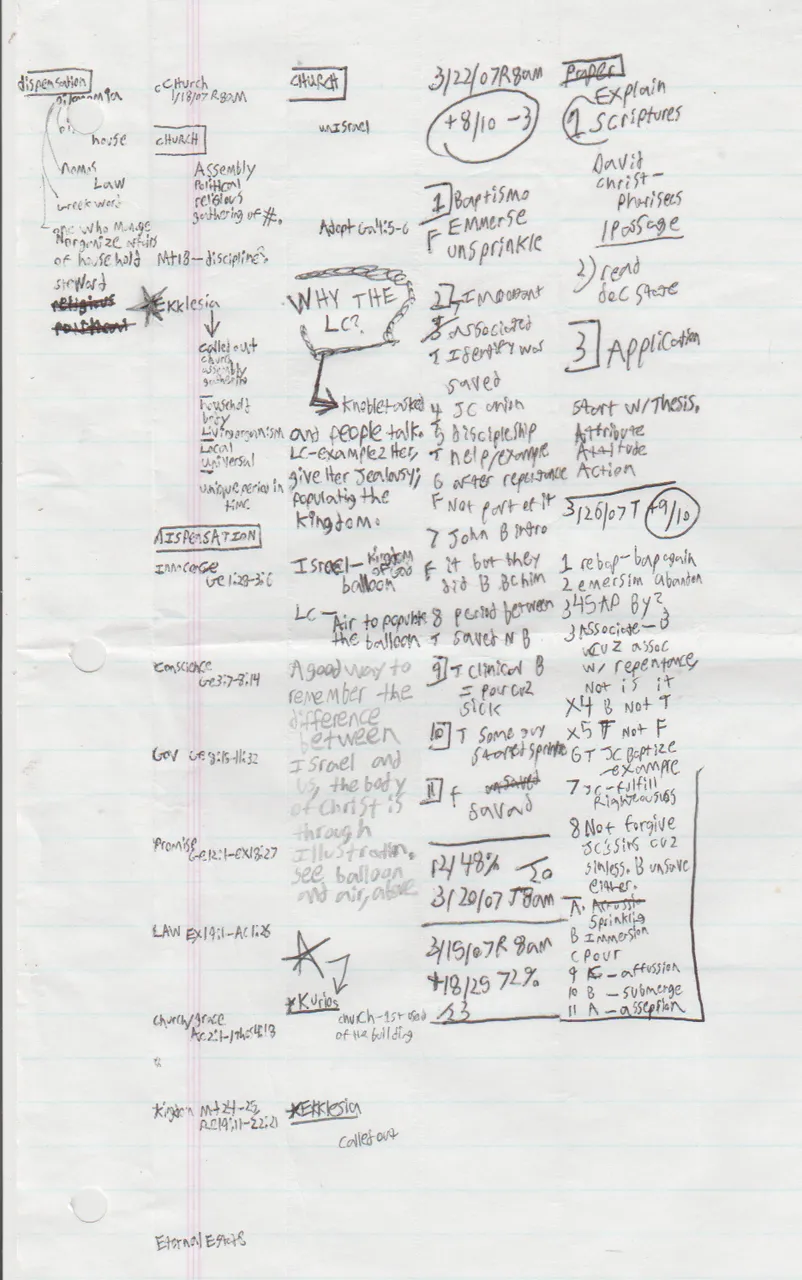 dispensation
oikonomia
house
Nomos
Law
Greek word
one who manage
N organize affairs
of household
steward
religious
political
cCHurch
1/18/07 R 8am
CHURCH
Assembly
Political
religious
gathering of #.
Mt18-discipline?
Ekklesia
called out
church
assembly
gathering
household
body
Living organism
Local
universal
unique period in
time
DISPENSATION
Innocence
Ge1:28-3:6
Conscience
Ge3:7-8:14
Gov Ge8:15-11:32
Promise
Ge12:1-Ex18:27
LAW Ex19:1-Ac1:26
Church/grace
Ac2:1-1Thes4:18
Kingdom Mt24-25,
Re19:11-22:21
Eternal Estate
CHURCH
unIsrael
Adopt Gal4:5-6
WHY THE
LC?
Knoble tasked
and people talk.
LC-example2 Her,
give Her Jealousy;
populating the
Kingdom.
Israel-Kingdom
of God
balloon
LC-Air to populate
the balloon
A good way to
remember the
difference
between
Israel and
us, the body
of Christ is
through
Illustration.
see balloon
and air, above
*Kurios
church-1st used
of the building
*Ekklesia
Called out
3/22/07 R 8am
+8/10 -3
1 Baptismo
F Emmerse
unsprinkle
2 Important
3 associated
T Identify was
saved
4 JC union
5 discipleship
T help/example
6 after repentance
F Not part of it
7 John B intro
F it but they
did B B4 him
8 period between
T saved N B
9 T Clinical B
I pour cuz
sick
10 T Some guy
started sprinkle
11 F unsaved
saved
12/48% -20
3/20/07 T 8am
3/15/07 R 8am
+18/25 72%
/23
Paper
1 Explain
Scriptures
David
christ-
Pharisees
1 Passage
2) read
doc state
3 Application
Start w/Thesis.
Attribute
Attitude
Action
3/26/07 T +9/10
1 rebap-bap again
2 emersim abandon
345AD By?
3 Associate-B
cuz assoc
w/ repentance,
Not is it
X4 B Not T
X5 T Not F
6T JC Baptize
-example
7 JC-fulfill
Righteousness
8 Not forgive
JC's sins cuz
sinless. B unsave
either.
A. Affussion
Sprinkling
B Immersion
C Pour
9 C-affussion
10 B-submerge
11 A-asseption